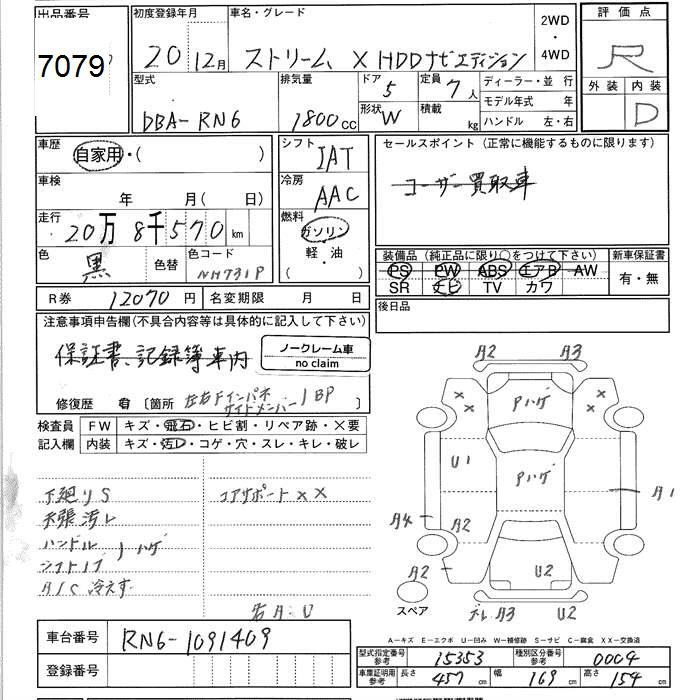 出品番号
7079
初度登録年月
20 12月
車名・グレード
ストリーム X HDDナビエディション
2WD
・
4WD
評価点
R
外装 内装
D
型式
DBA-RN6
排気量
1800cc
ドア
5
形状
W
定員
7人
積載
kg
ディーラー・並 行
モデル年式 年
ハンドル 左・右
車歴
自家用・( )
シフト
IAT
セールスポイント (正常に機能するものに限ります)
ユーザー買取車
車検
年 月( 日)
冷房
AAC
走行
20万8千570km
燃料
ガソリン
軽・油
( )
色
黒
色替
色コード
NH731P
装備品 (純正品に限り○をつけて下さい)
PS PW ABS エアB AW
SR ナビ TV カワ
新車保証書
有・無
R券 12070円
名変期限 月 日
後日品
注意事項申告欄(不具合内容等は具体的に記入して下さい)
保証書、記録簿車内
ノークレーム車
no claim
修復歴 有 〔箇所 左右Fインパネ サイドメンバー BP 〕
検査員
記入欄
FW キズ・飛石・ヒビ割・リペア跡・×要
内装 キズ・汚レ・コゲ・穴・スレ・キレ・破レ
下廻りS
天張汚レ
ハンドル
シフトノブ ハゲ
A/C 冷えず
コアサポート××
右A:U
A2 A3
Pハゲ
× ×
× ×
U1
Pハゲ
A1
A4 A2
A2
U2
スペア
A3 U2
A-キズ E-エクボ U-凹み W-補修跡 S-サビ C-腐食 XX-交換済
車台番号
RN6-1091409
登録番号
型式指定番号
参考
15353
種別区分番号
参考
0004
車庫証明用
参考
長さ 457cm
幅 169cm
高さ 154cm